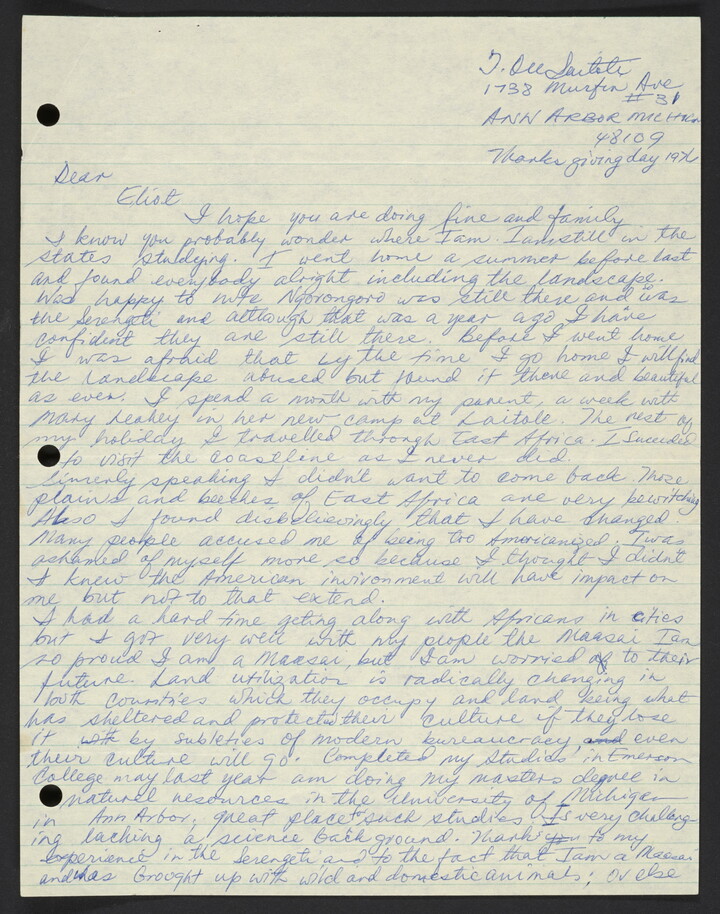 T. Ole Saitoti
1738 Murfin Ave
# 31
ANN ARBOR MICHIGAN
48109
Thanks giving day 1976
Dear
Eliot
I hope you are doing fine and family
I know you probably wonder where I am. I am still in the
states studying. I went home a summer before last
and found everybody alright including the landscape.
Was happy to Ngorongoro was still there and so was
the Serengeti and although that was a year ago I have
confident they are still there. Before I went home
I was afraid that by the time I go home I will find
the landscape abused but found it there and beautiful
as ever. I spend a month with my parent, a week with
Mary Leakey in her new camp at Laitole. The rest of
my holiday I travelled through East Africa. I succeded
to visit the coastline as I never did.
Sincerly speaking I didn't want to come back. Those
plains and beeches of East Africa are very bewitching
Also I found disbelievingly that I have changed.
Many people accused me of being too Americanized. I was
ashamed of myself more so because I thought I didn't
I knew the American invironment will have impact on
me but not to that extend.
I had a hard time geting along with Africans in cities
but I got very well with my people the Maasai I am
so proud I am a Maasai, but I am worried of to their
future. Land utilization is radically changing in
both countries which they occupy and land being what
has sheltered and protected their culture if they lose
it with by subleties of modern bureaucracy, and even
their culture will go. Completed my studies in Emerson
College may last year am doing my masters degree in
natural resources in the University of Michigan
in Ann Arbor, great place to such studies. Is very challeng-
ing lacking a science back ground. Thank you to my
experience in the Serengeti and to the fact that I am a Maasai
and was brought up with wild and domestic animals; Or else